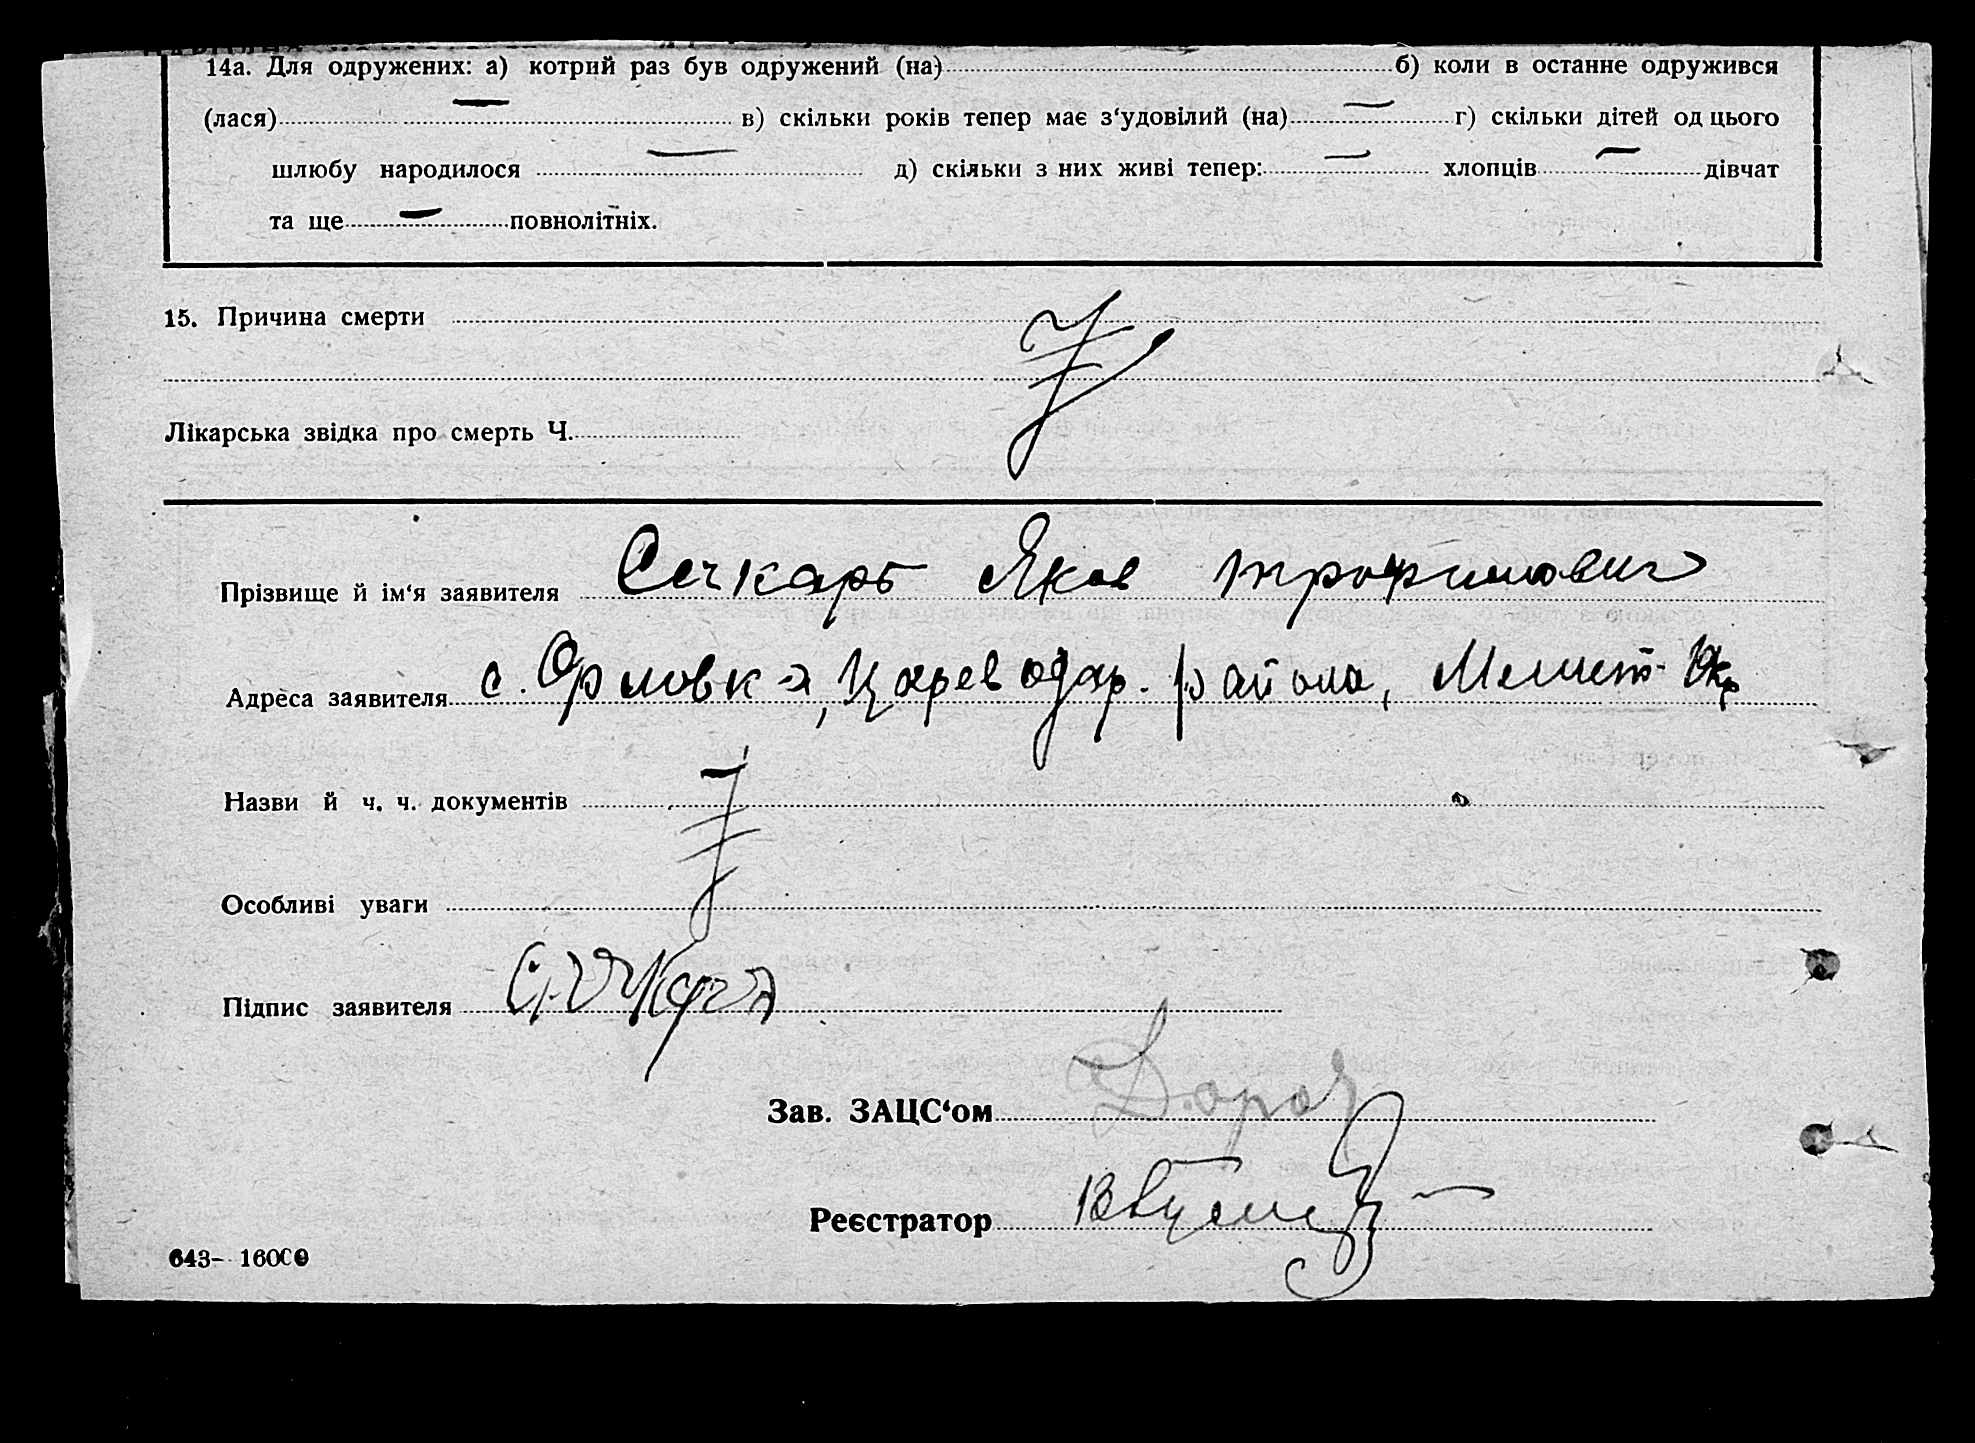 14а. Для одружених: а) котрий раз був одружений (на) б) коли в останне одружився
(лася) — в) скільки років тепер має з‘удовілий (на) — г) скільки дітей од цього
шлюбу народилося — д) скільки з них живі тепер: — хлопців — дівчат
та ще — повнолітніх.
15. Причина смерти
Лікарська звідка про смерть Ч.
Прізвище й ім‘я заявителя Сечкарь Яков Трофимович
Адреса заявителя с. Орловка, Цареводар. района,
Назви й ч. ч. документів
Особливі уваги
Підпис заявителя
Зав. ЗАЦС‘ом
Реєстратор
643- 16000